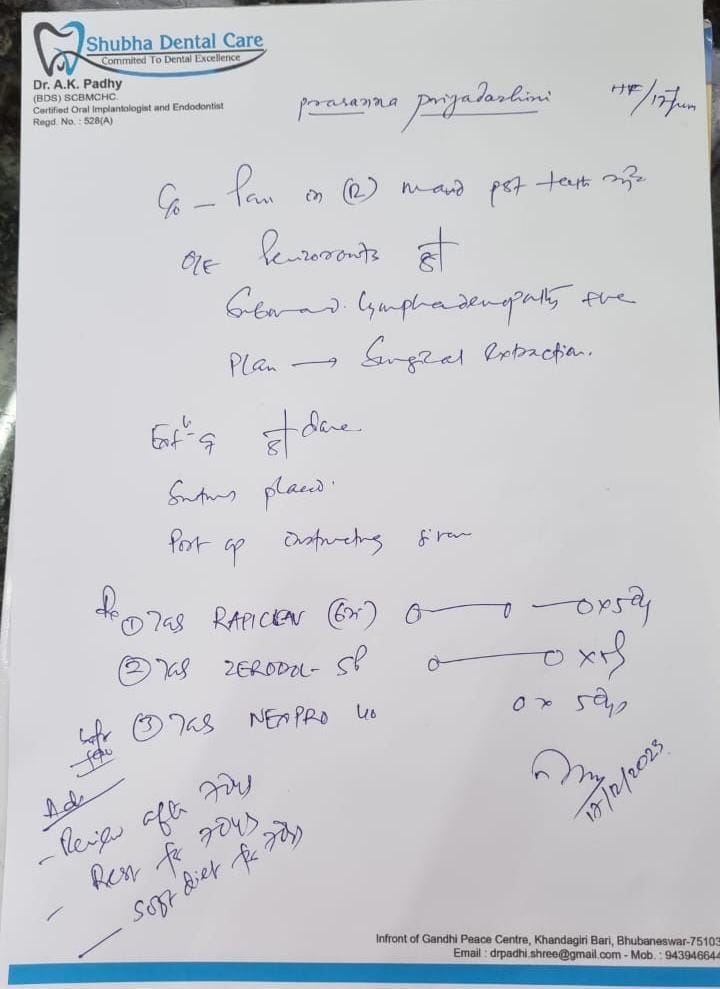 Shubha Dental Care
Commited To Dental Excellence
Dr. A.K. Padhy
(BDS) SCBMCHC.
Certified Oral Implantologist and Endodontist
Regd. No. : 528(A)
prasanna priyadashini
C/o - Pain in (R) mand post teeth
O/E 8
Submand. lymphadenopathy +ve
Plan → Surgical extraction.
8 done
Sutures placed.
Post op instructions given
Rx ① Tab RAPICLAV (625) 0—0—0 x 5d
② Tab ZERODOL-SP 0—0 x 5d
③ Tab NEXPRO 40 0 x 5days
Adv
- Review after 7days
- Rest for 7days
- Soft diet for 7days
17/12/2023
Infront of Gandhi Peace Centre, Khandagiri Bari, Bhubaneswar-75103
Email : drpadhi.shree@gmail.com - Mob. : 943946644